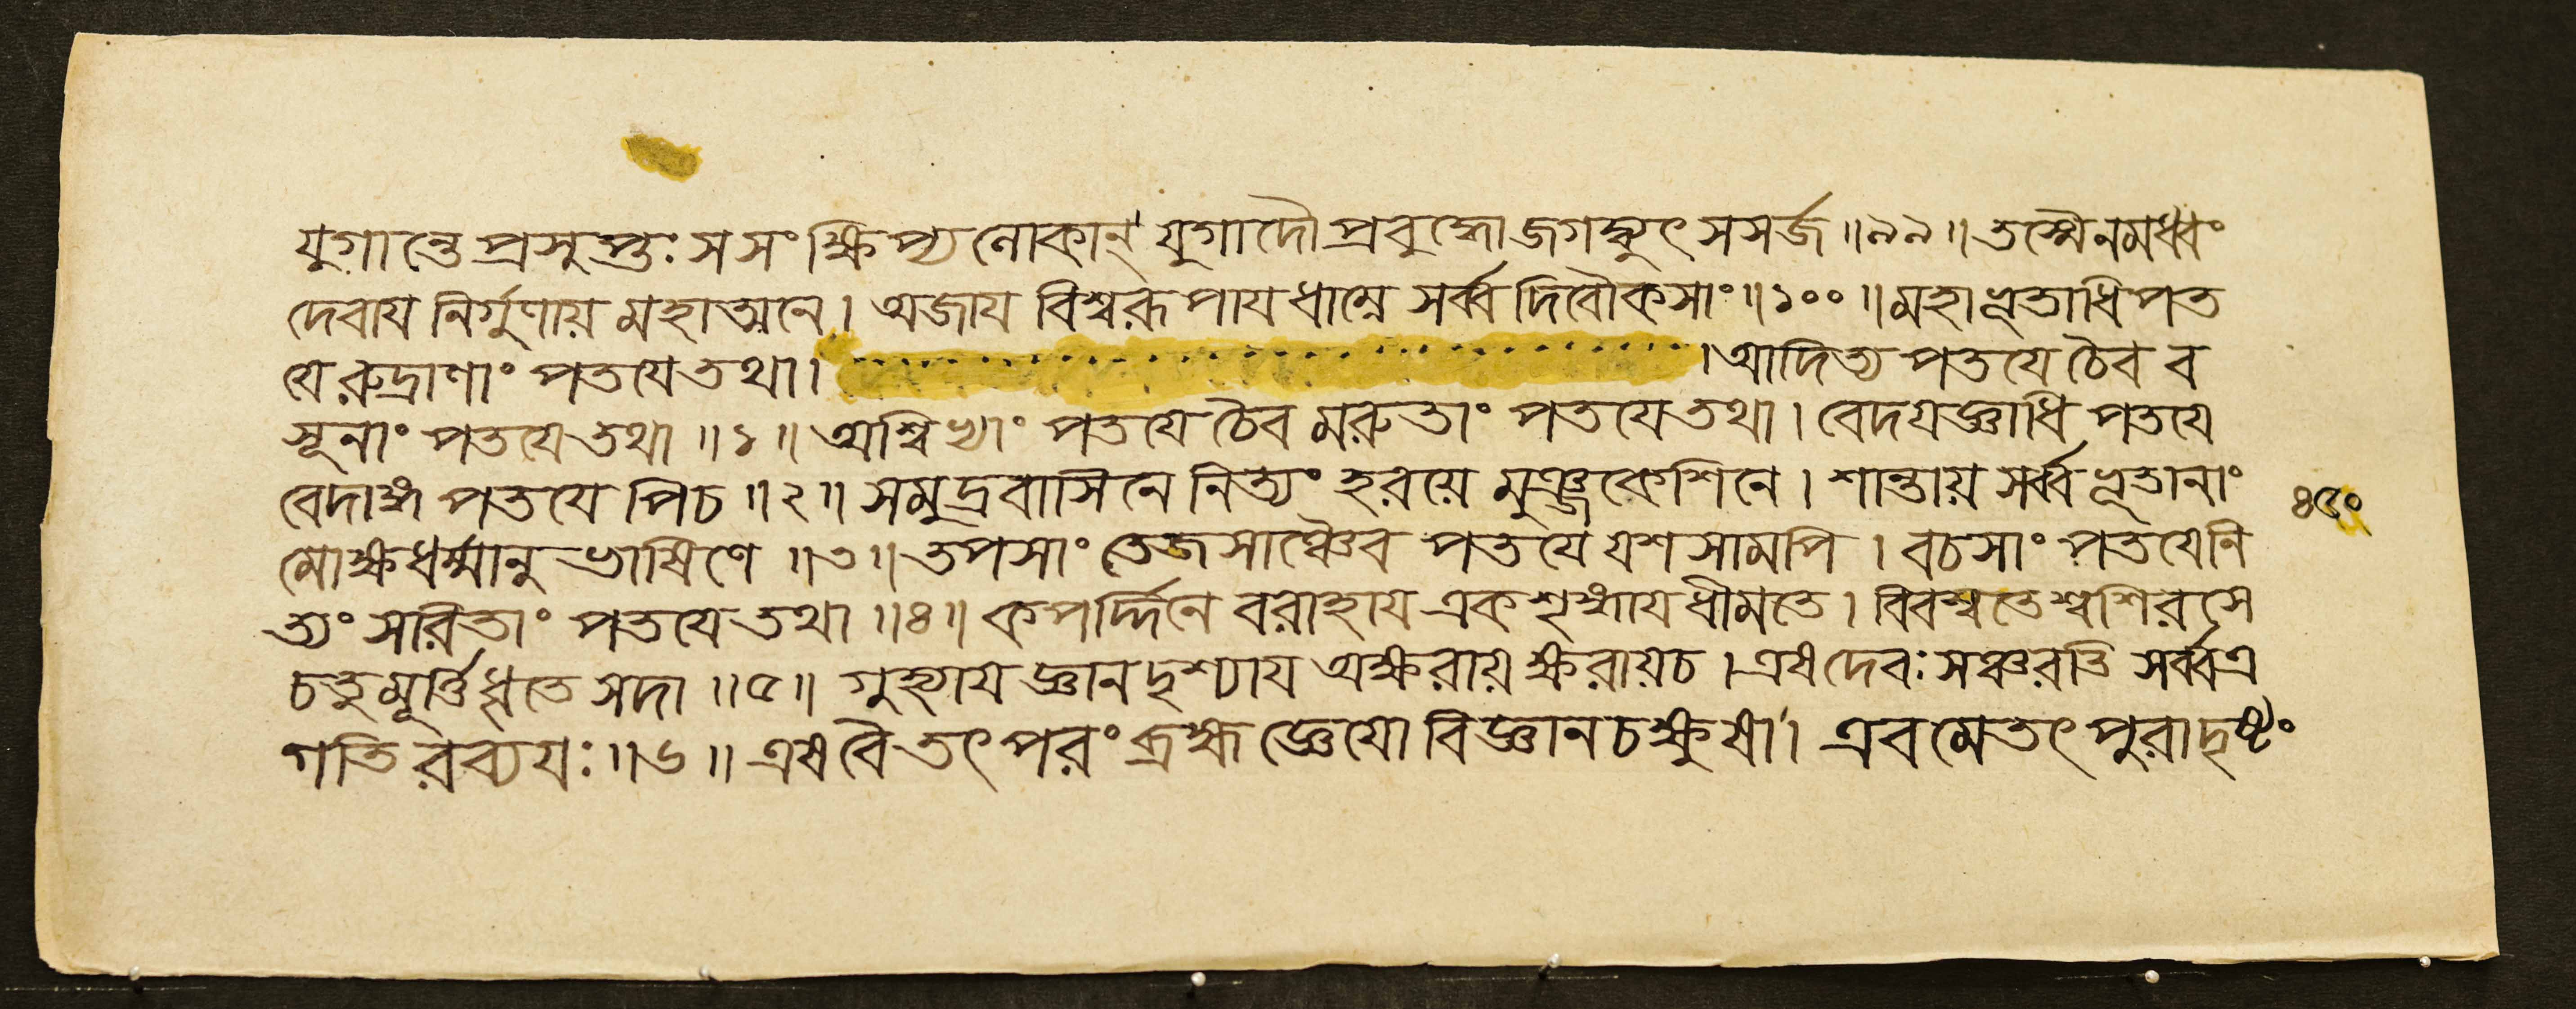 যুগান্তে প্রসুপ্তঃ সসংক্ষিপ্য লোকান্ যুগাদৌ প্রবুদ্ধো জগদ্ধ্যুৎ সসর্জ ॥৯৯॥ তস্মৈ নমধ্বং
দেবায নির্গুণায় মহাত্মনে। অজায বিশ্বরূপায ধাম্নে সর্ব্ব দিবৌকসাং ॥১০০॥ মহাভূতাধিপত
যে রুদ্রাণাং পতযে তথা। । আদিত্য পতযে চৈব ব
সূনাং পতযে তথা ॥১॥ অশ্বিভ্যাং পতযে চৈব মরুতাং পতযে তথা। বেদযজ্ঞাধি পতযে
বেদাঙ্গ পতযে পিচ ॥২॥ সমুদ্রবাসিনে নিত্যং হরয়ে মুঞ্জকেশিনে। শান্তায় সর্ব্বভূতানাং
মোক্ষধর্ম্মানু ভাষিণে ॥৩॥ তপসাং তেজসাঞ্চৈব পতযে যশসামপি । বচসাং পতযেনি
ত্যং সরিতাং পতযে তথা ॥৪॥ কপর্দ্দিনে বরাহায একশৃঙ্গায ধীমতে। বিবস্বতেশ্বশিরসে
চতুমূর্ত্তিধৃতে সদা ॥৫॥ গুহ্যায জ্ঞানদৃশ্যায অক্ষরায় ক্ষরায়চ । এষদেবঃ সঞ্চরতি সর্ব্বত্র
গতি রব্যযঃ ॥৬॥ এষ বৈ তৎ পরং ব্রহ্ম জ্ঞেযো বিজ্ঞানচক্ষুষা। এবমেতৎ পুরাদৃষ্টং
৪৫০